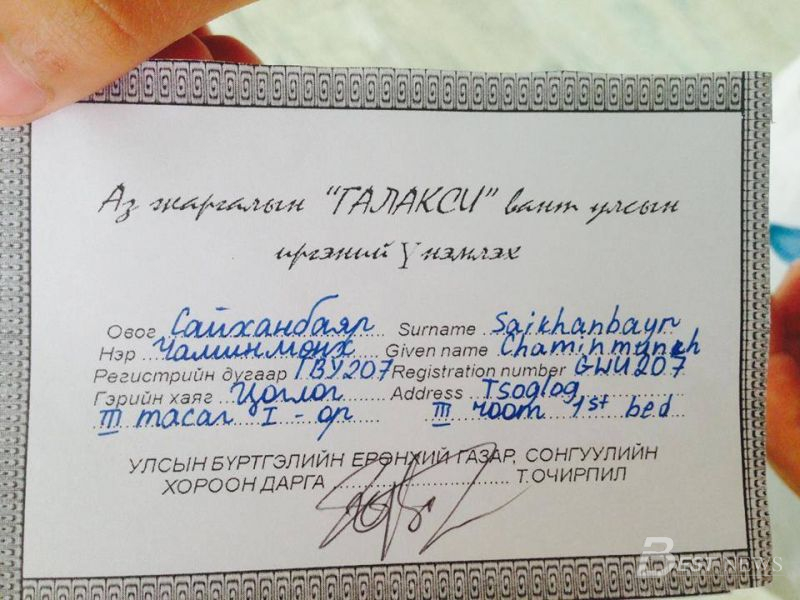 Аз жаргалын "ГАЛАКСИ" вант улсын
иргэний Үнэмлэх
Овог Сайханбаяр Surname Saikhanbayr
Нэр Чаминмөнх Given name Chaminmunch
Регистрийн дугаар ГВУ207 Registration number GWU207
Гэрийн хаяг Цоглог Address Tsoglog
III тасаг I - ор III room 1st bed
УЛСЫН БҮРТГЭЛИЙН ЕРӨНХИЙ ГАЗАР, СОНГУУЛИЙН
ХОРООН ДАРГА .................................. Т.ОЧИРПИЛ
BEST NEWS